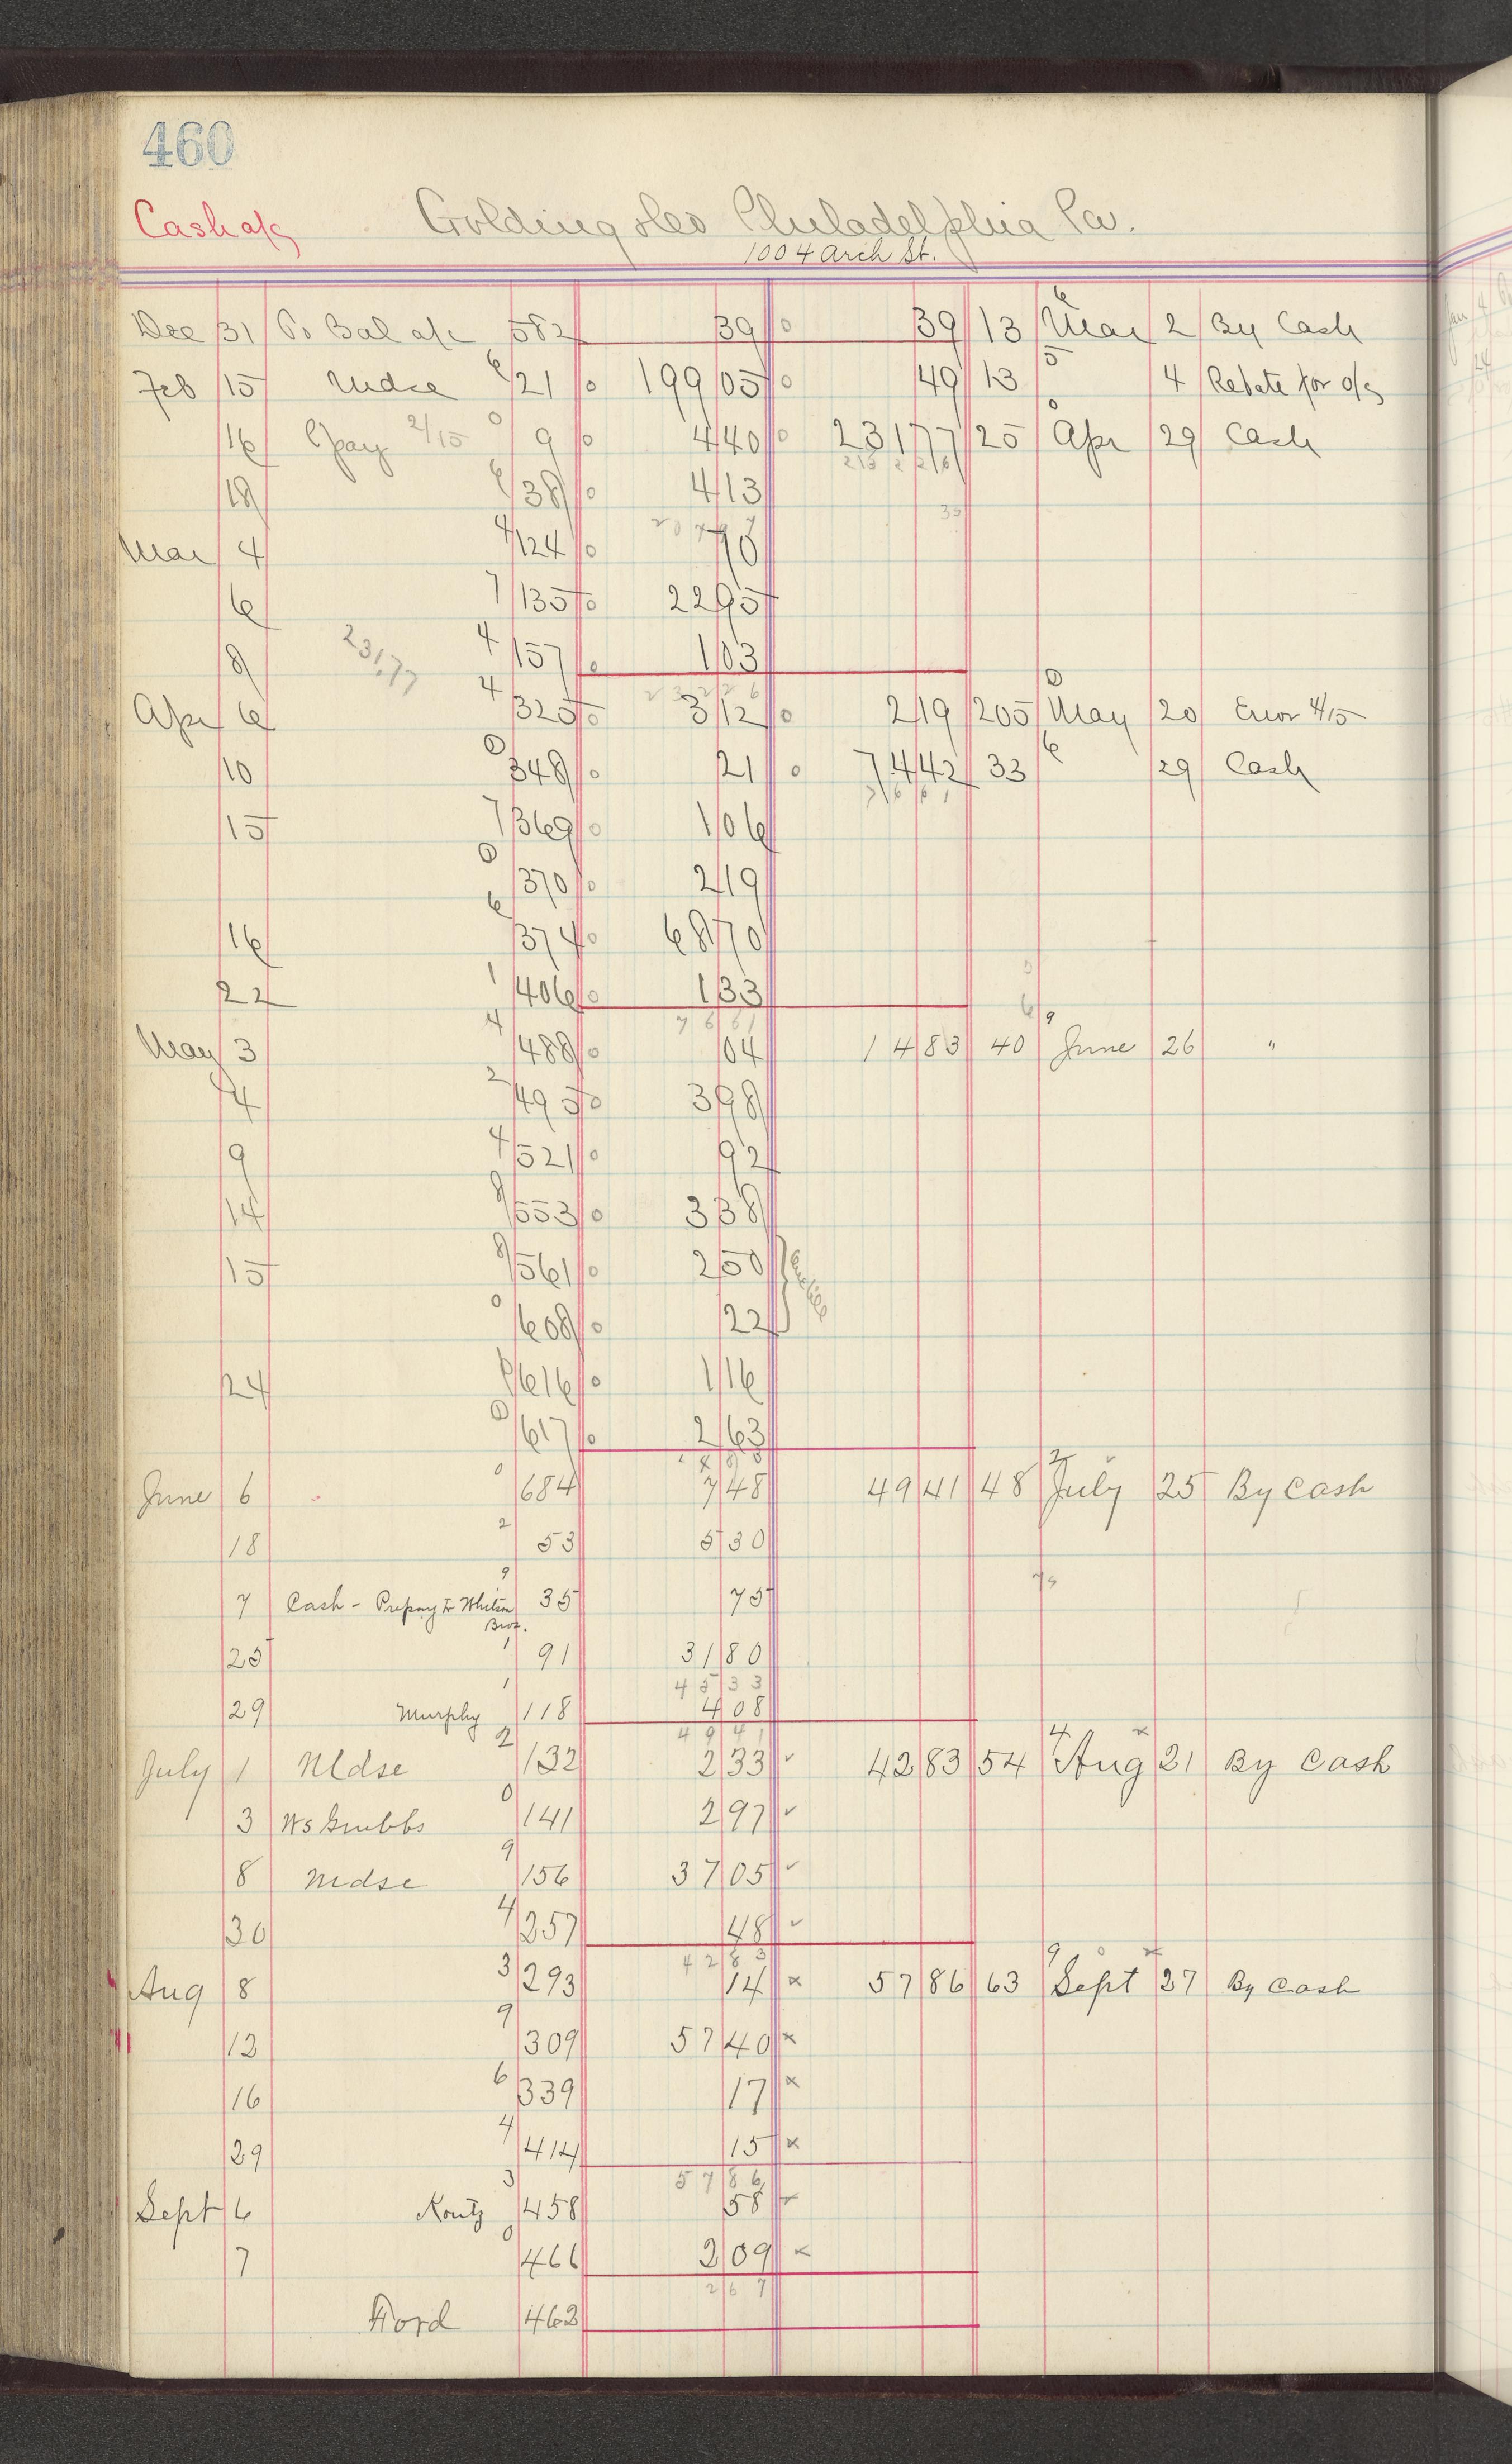 460
Cash a/c Golding & Co Philadelphia Pa.
1004 Arch St.
Dec 31 To Bal a/c 582 39 0 39 13 6 Mar 2 By Cash
Feb 15 Mdse 6 21 0 199 05 0 49 13 5 4 Rebate for o/c
16 Ppay 2/15 0 9 0 4 40 0 231 77 25 0 Apr 29 Cash
18 6 38 0 4 13
Mar 4 4 124 0 70
6 7 135 0 22 95
8 23177 4 157 0 1 03
Apr 6 4 325 0 3 12 0 2 19 205 0 May 20 Error 4/15
10 0 348 0 21 0 74 42 33 6 29 Cash
15 7 369 0 1 06
0 370 0 2 19
16 6 374 0 68 70
22 1 406 0 1 33
76 61
May 3 4 488 0 04 14 83 40 9 June 26 "
4 2 495 0 3 98
9 4 521 0 92
14 8 553 0 3 38
15 8 561 0 2 50
0 608 0 22
24 616 0 1 16
0 617 0 2 63
June 6 0 684 7 48 49 41 48 2 July 25 By Cash
18 2 53 5 30
7 Cash - Prepay to Whiten Bros. 9 35 75
25 1 91 31 80
45 33
29 Murphy 1 118 4 08
49 41
July 1 Mdse 2 132 2 33 ✓ 42 83 54 4 Aug x 21 By Cash
3 Ws Grubbs 0 141 2 97 ✓
8 Mdse 9 156 37 05 ✓
30 4 257 48 ✓
42 83
Aug 8 3 293 14 x 57 86 63 9 Sept x 27 By Cash
12 9 309 57 40 x
16 6 339 17 x
29 4 414 15 x
57 86
Sept 6 Kontz 3 458 58 x
7 0 466 2 09 x
2 67
Ford 462